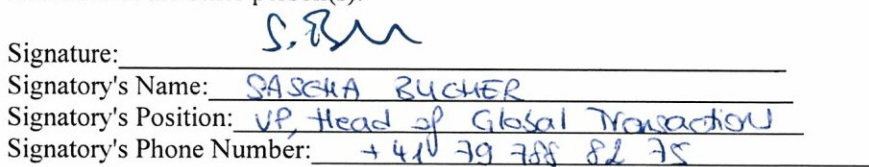 Signature: S. B
Signatory's Name: SASCHA BUCHER
Signatory's Position: VP, Head of Global Transaction
Signatory's Phone Number: +41 79 788 82 75